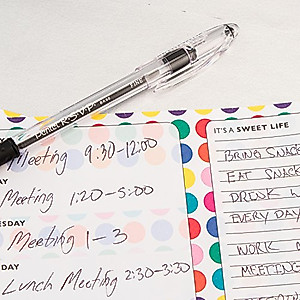 Pentel R.S.V.P.® FINE
Meeting 9:30-12:00
AY
Meeting 1:20-5:00
ESDAY
Meeting 1-3
DAY
Lunch Meeting 2:30-3:30
IT'S A SWEET LIFE
BRING SNACK
EAT SNACK
DRINK
EVERY DAY
WORK
MEETING